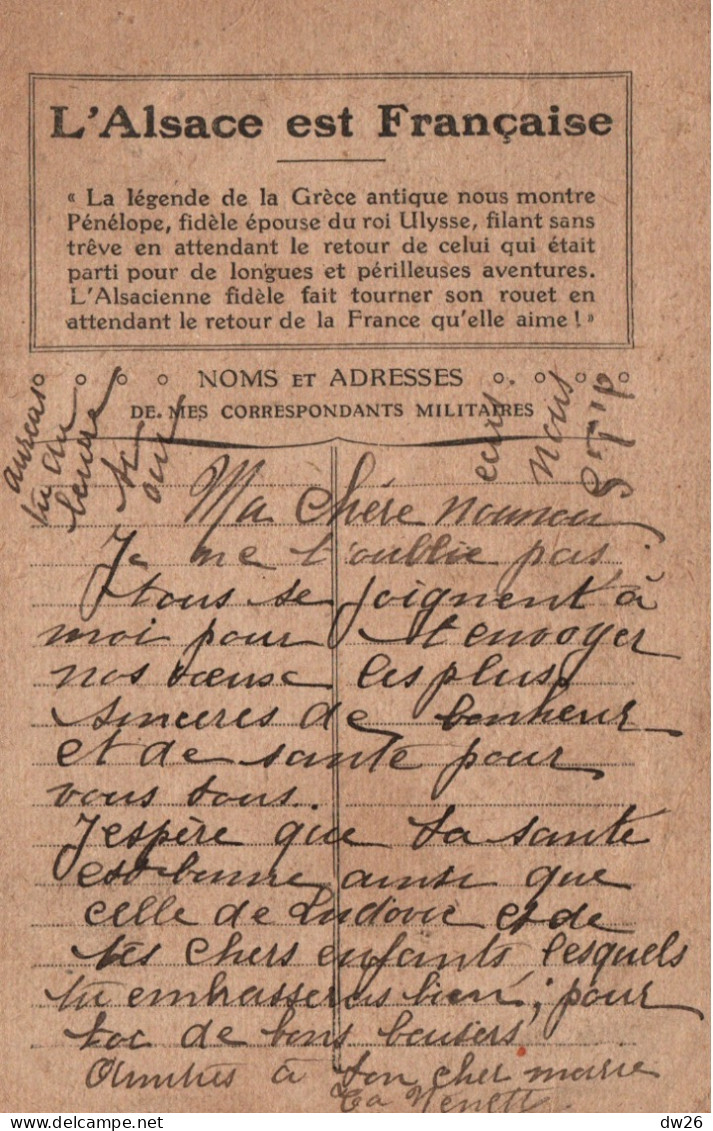 L'Alsace est Française
« La légende de la Grèce antique nous montre
Pénélope, fidèle épouse du roi Ulysse, filant sans
trêve en attendant le retour de celui qui était
parti pour de longues et périlleuses aventures.
L'Alsacienne fidèle fait tourner son rouet en
attendant le retour de la France qu'elle aime ! »
NOMS ET ADRESSES
DE MES CORRESPONDANTS MILITAIRES
Si
aureas
tu du
beurre
ecris
nous
S.T.P
Ma chère nounou
Je ne t'oublie pas
tous se joignent à
moi pour t'envoyer
nos vœux les plus
sincères de bonheur
et de santé pour
vous tous.
J'espère que ta santé
est bonne ainsi que
celle de Ludovic et de
tes chers enfants lesquels
tu embrasseras bien, pour
toi de bons baisers
Amitiés à ton cher
Ta
dw26